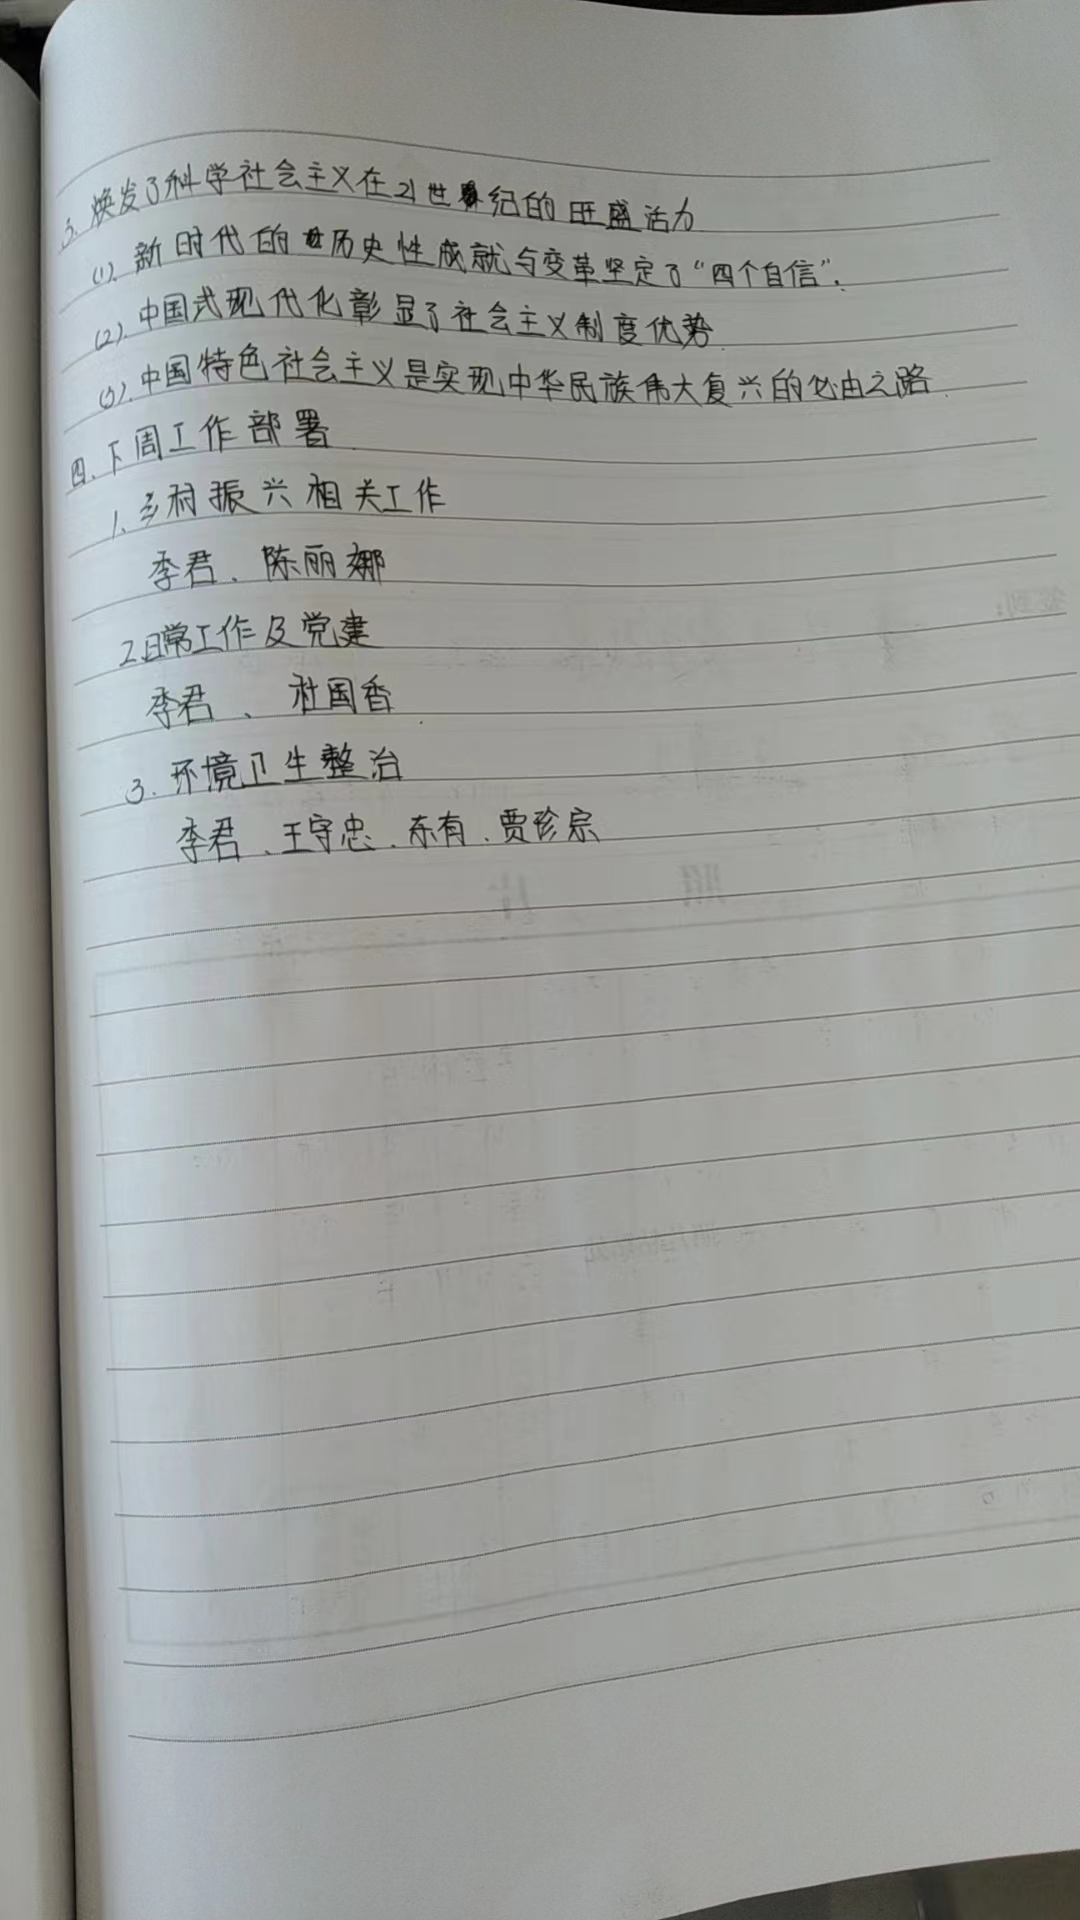 3. 焕发了科学社会主义在21世纪的旺盛活力
(1). 新时代的历史性成就与变革坚定了“四个自信”.
(2). 中国式现代化彰显了社会主义制度优势
(3). 中国特色社会主义是实现中华民族伟大复兴的必由之路
四. 下周工作部署
1、乡村振兴相关工作
李君、陈丽娜
2.日常工作及党建
李君、杜国香
3. 环境卫生整治
李君、王守忠、东有、贾珍宗
签到:
照 片